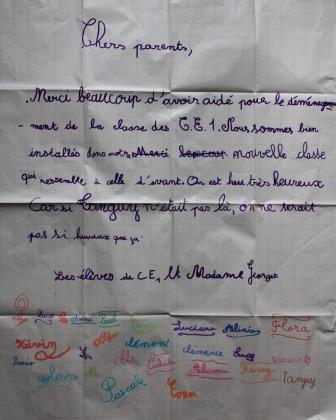 Chers parents,
Merci beaucoup d'avoir aidé pour le déménagem
-ment de la classe des C.E.1. Nous sommes bien
installés dans notre Merci beaucoup nouvelle classe
qui ressemble à celle d'avant. On est heu très heureux
Car si Tanguy n'était pas là, on ne serait
pas si heureux que ça.
Les élèves de CE1 et Madame Georget
Lucas Paul Luciana Mélissa Flora
Kévin clément clémence Emma
Dario Fanny
Pascale Evan Tanguy